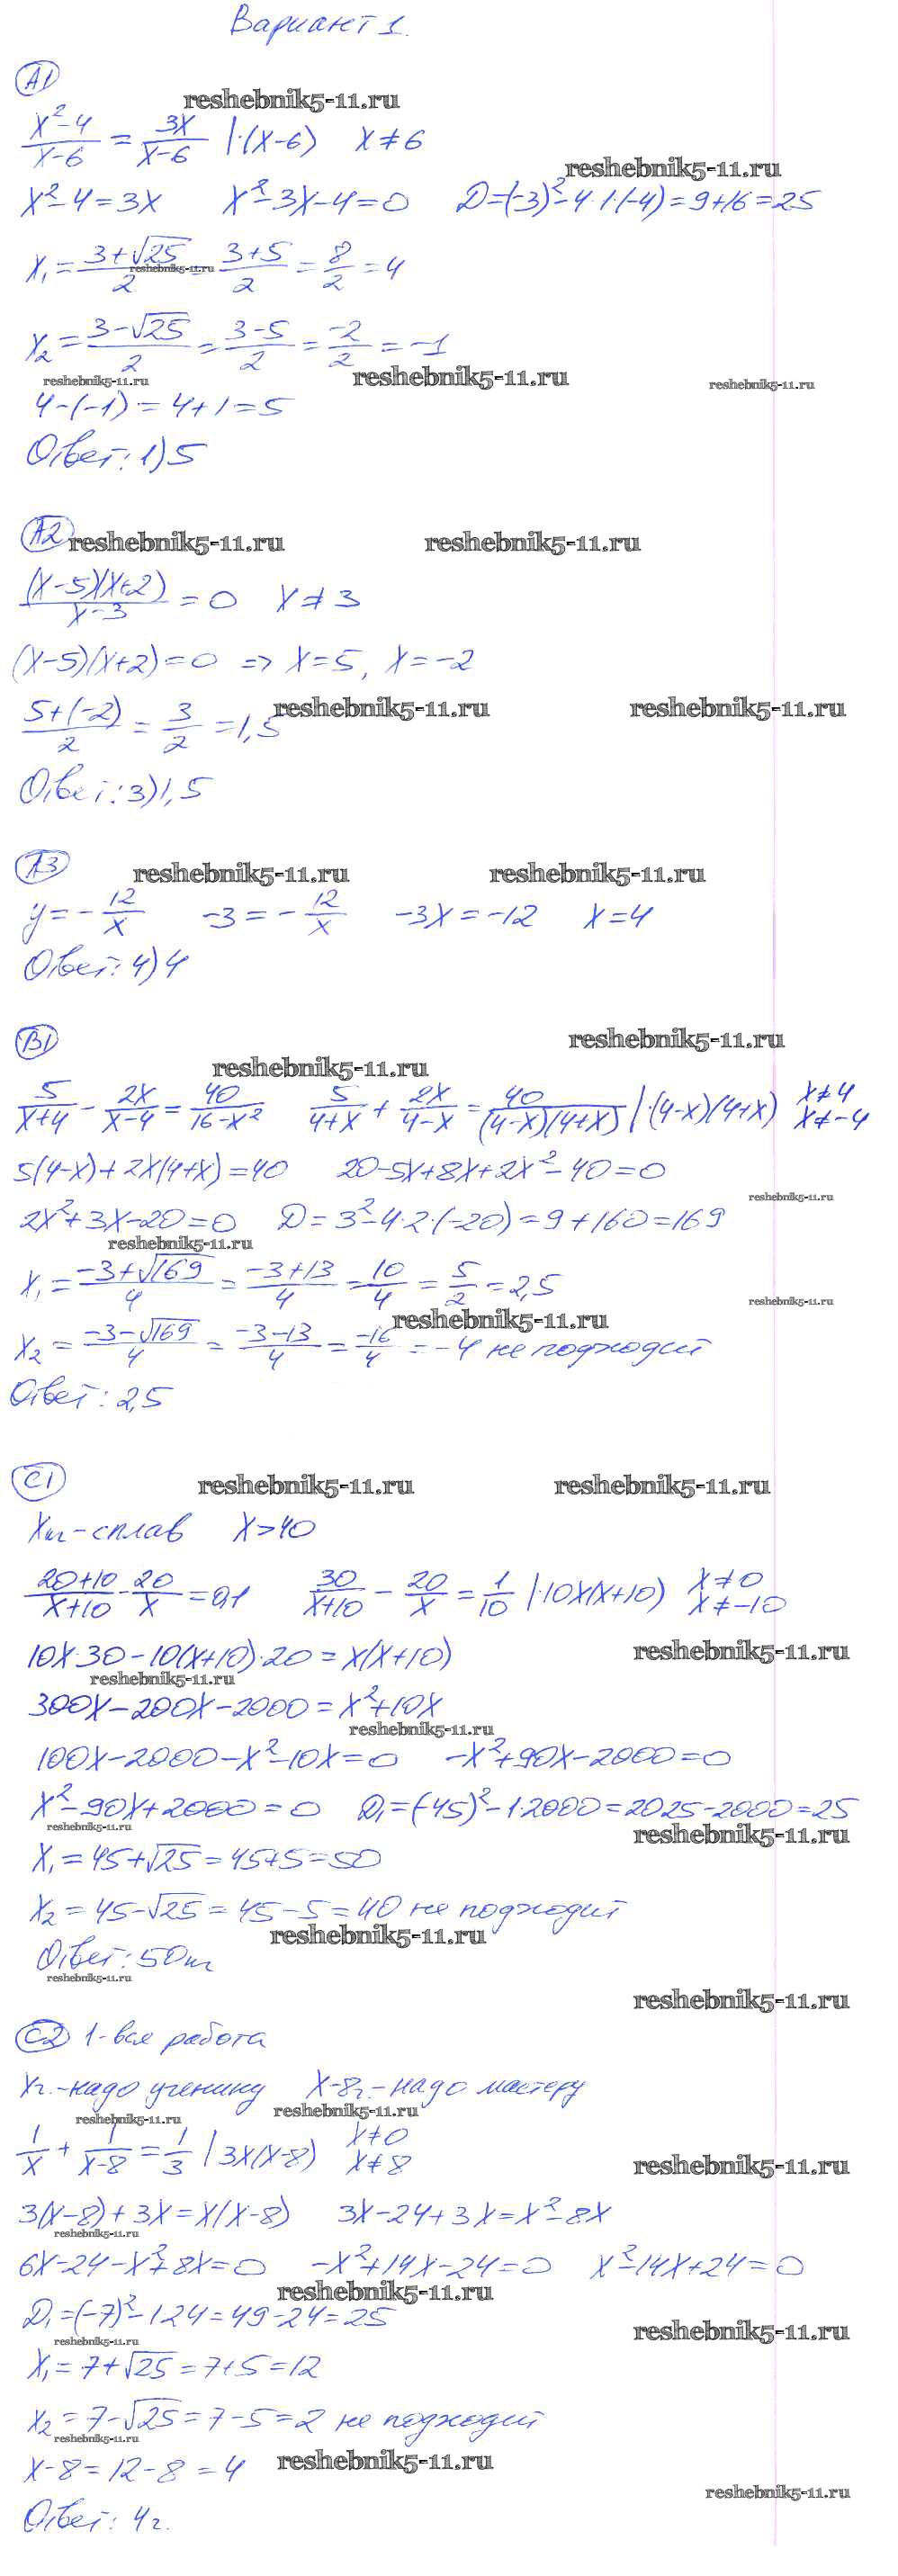 Вариант 1.
A1
reshebnik5-11.ru
(x²-4)/(x-6) = 3x/(x-6) |·(x-6)   x≠6
reshebnik5-11.ru
x²-4=3x   x²-3x-4=0   D=(-3)²-4·1·(-4)=9+16=25
x₁=(3+√25)/2=(3+5)/2=8/2=4
reshebnik5-11.ru
x₂=(3-√25)/2=(3-5)/2=-2/2=-1
reshebnik5-11.ru reshebnik5-11.ru reshebnik5-11.ru
4-(-1)=4+1=5
Ответ: 1) 5
A2 reshebnik5-11.ru reshebnik5-11.ru
(x-5)(x+2)/(x-3) = 0   x≠3
(x-5)(x+2)=0 => x=5, x=-2
(5+(-2))/2=3/2=1,5 reshebnik5-11.ru reshebnik5-11.ru
Ответ: 3) 1,5
A3 reshebnik5-11.ru reshebnik5-11.ru
y=-12/x   -3=-12/x   -3x=-12   x=4
Ответ: 4) 4
B1 reshebnik5-11.ru
reshebnik5-11.ru
5/(x+4) - 2x/(x-4) = 40/(16-x²)   5/(4+x) + 2x/(4-x) = 40/((4-x)(4+x)) |·(4-x)(4+x)   x≠4 x≠-4
5(4-x)+2x(4+x)=40   20-5x+8x+2x²-40=0
reshebnik5-11.ru
2x²+3x-20=0   D=3²-4·2·(-20)=9+160=169
reshebnik5-11.ru
x₁=(-3+√169)/4=(-3+13)/4=10/4=5/2=2,5
reshebnik5-11.ru reshebnik5-11.ru
x₂=(-3-√169)/4=(-3-13)/4=-16/4=-4 не подходит
Ответ: 2,5
C1 reshebnik5-11.ru reshebnik5-11.ru
xкг-сплав   x>40
(20+10)/(x+10)-20/x=0,1   30/(x+10) - 20/x = 1/10 |·10x(x+10)   x≠0 x≠-10
10x·30-10(x+10)·20=x(x+10) reshebnik5-11.ru
reshebnik5-11.ru
300x-200x-2000=x²+10x
reshebnik5-11.ru
100x-2000-x²-10x=0   -x²+90x-2000=0
x²-90x+2000=0   D₁=(-45)²-1·2000=2025-2000=25
reshebnik5-11.ru reshebnik5-11.ru
x₁=45+√25=45+5=50
x₂=45-√25=45-5=40 не подходит
reshebnik5-11.ru
Ответ: 50кг
reshebnik5-11.ru
reshebnik5-11.ru
C2 1-вся работа
xч.-надо ученику   x-8ч.-надо мастеру
reshebnik5-11.ru reshebnik5-11.ru
1/x + 1/(x-8) = 1/3 | 3x(x-8)   x≠0 x≠8
reshebnik5-11.ru
3(x-8)+3x=x(x-8)   3x-24+3x=x²-8x
reshebnik5-11.ru
6x-24-x²+8x=0   -x²+14x-24=0   x²-14x+24=0
reshebnik5-11.ru
D₁=(-7)²-1·24=49-24=25 reshebnik5-11.ru
reshebnik5-11.ru
x₁=7+√25=7+5=12
x₂=7-√25=7-5=2 не подходит
reshebnik5-11.ru
x-8=12-8=4 reshebnik5-11.ru
reshebnik5-11.ru
Ответ: 4ч.